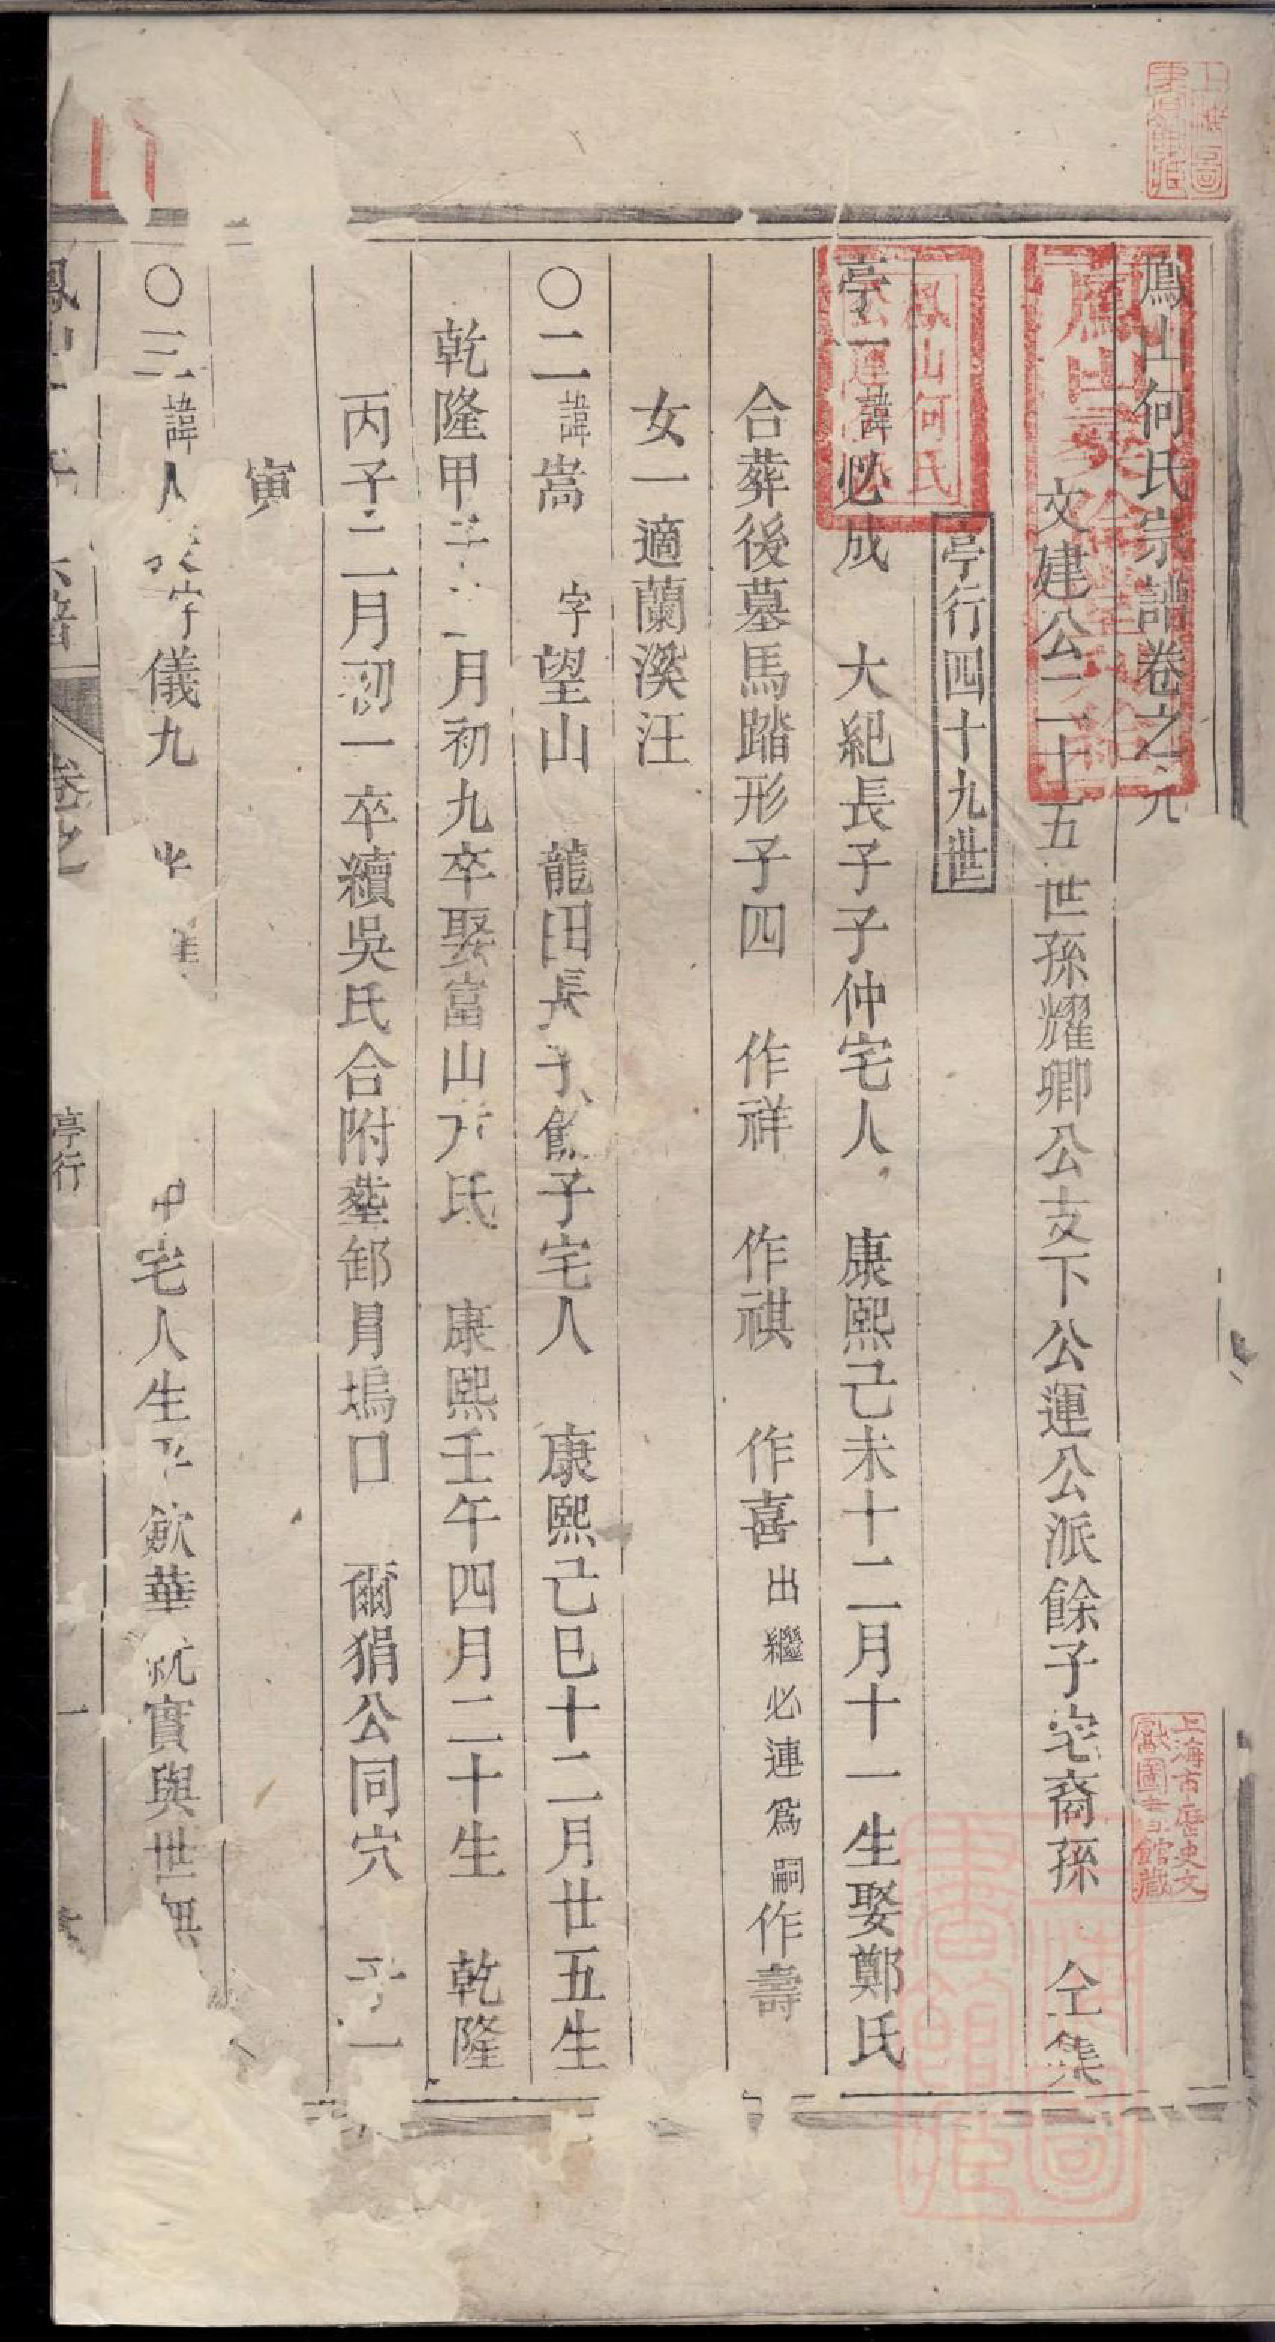 鳳山何氏宗譜卷之元
文建公二十五世孫耀卿公支下公運公派餘子宅裔孫 仝集
亭行四十九世
亭一諱必成 大紀長子子仲宅人 康熙己未十二月十一生娶鄭氏
合葬後墓馬踏形子四 作祥 作祺 作喜出繼必連爲嗣作壽
女一適蘭溪汪
〇二諱嵩 字望山 龍田長子餘子宅人 康熙己巳十二月廿五生
乾隆甲子 月初九卒娶富山方氏 康熙壬午四月二十生 乾隆
丙子二月初一卒續吳氏合附塟卸肩塢口 爾狷公同穴 子一
寅
〇三諱人 字儀九 宅人生平斂華就實與世無
卷之
亭行
一
鳳山何氏
上海市歷史文
獻圖書館藏